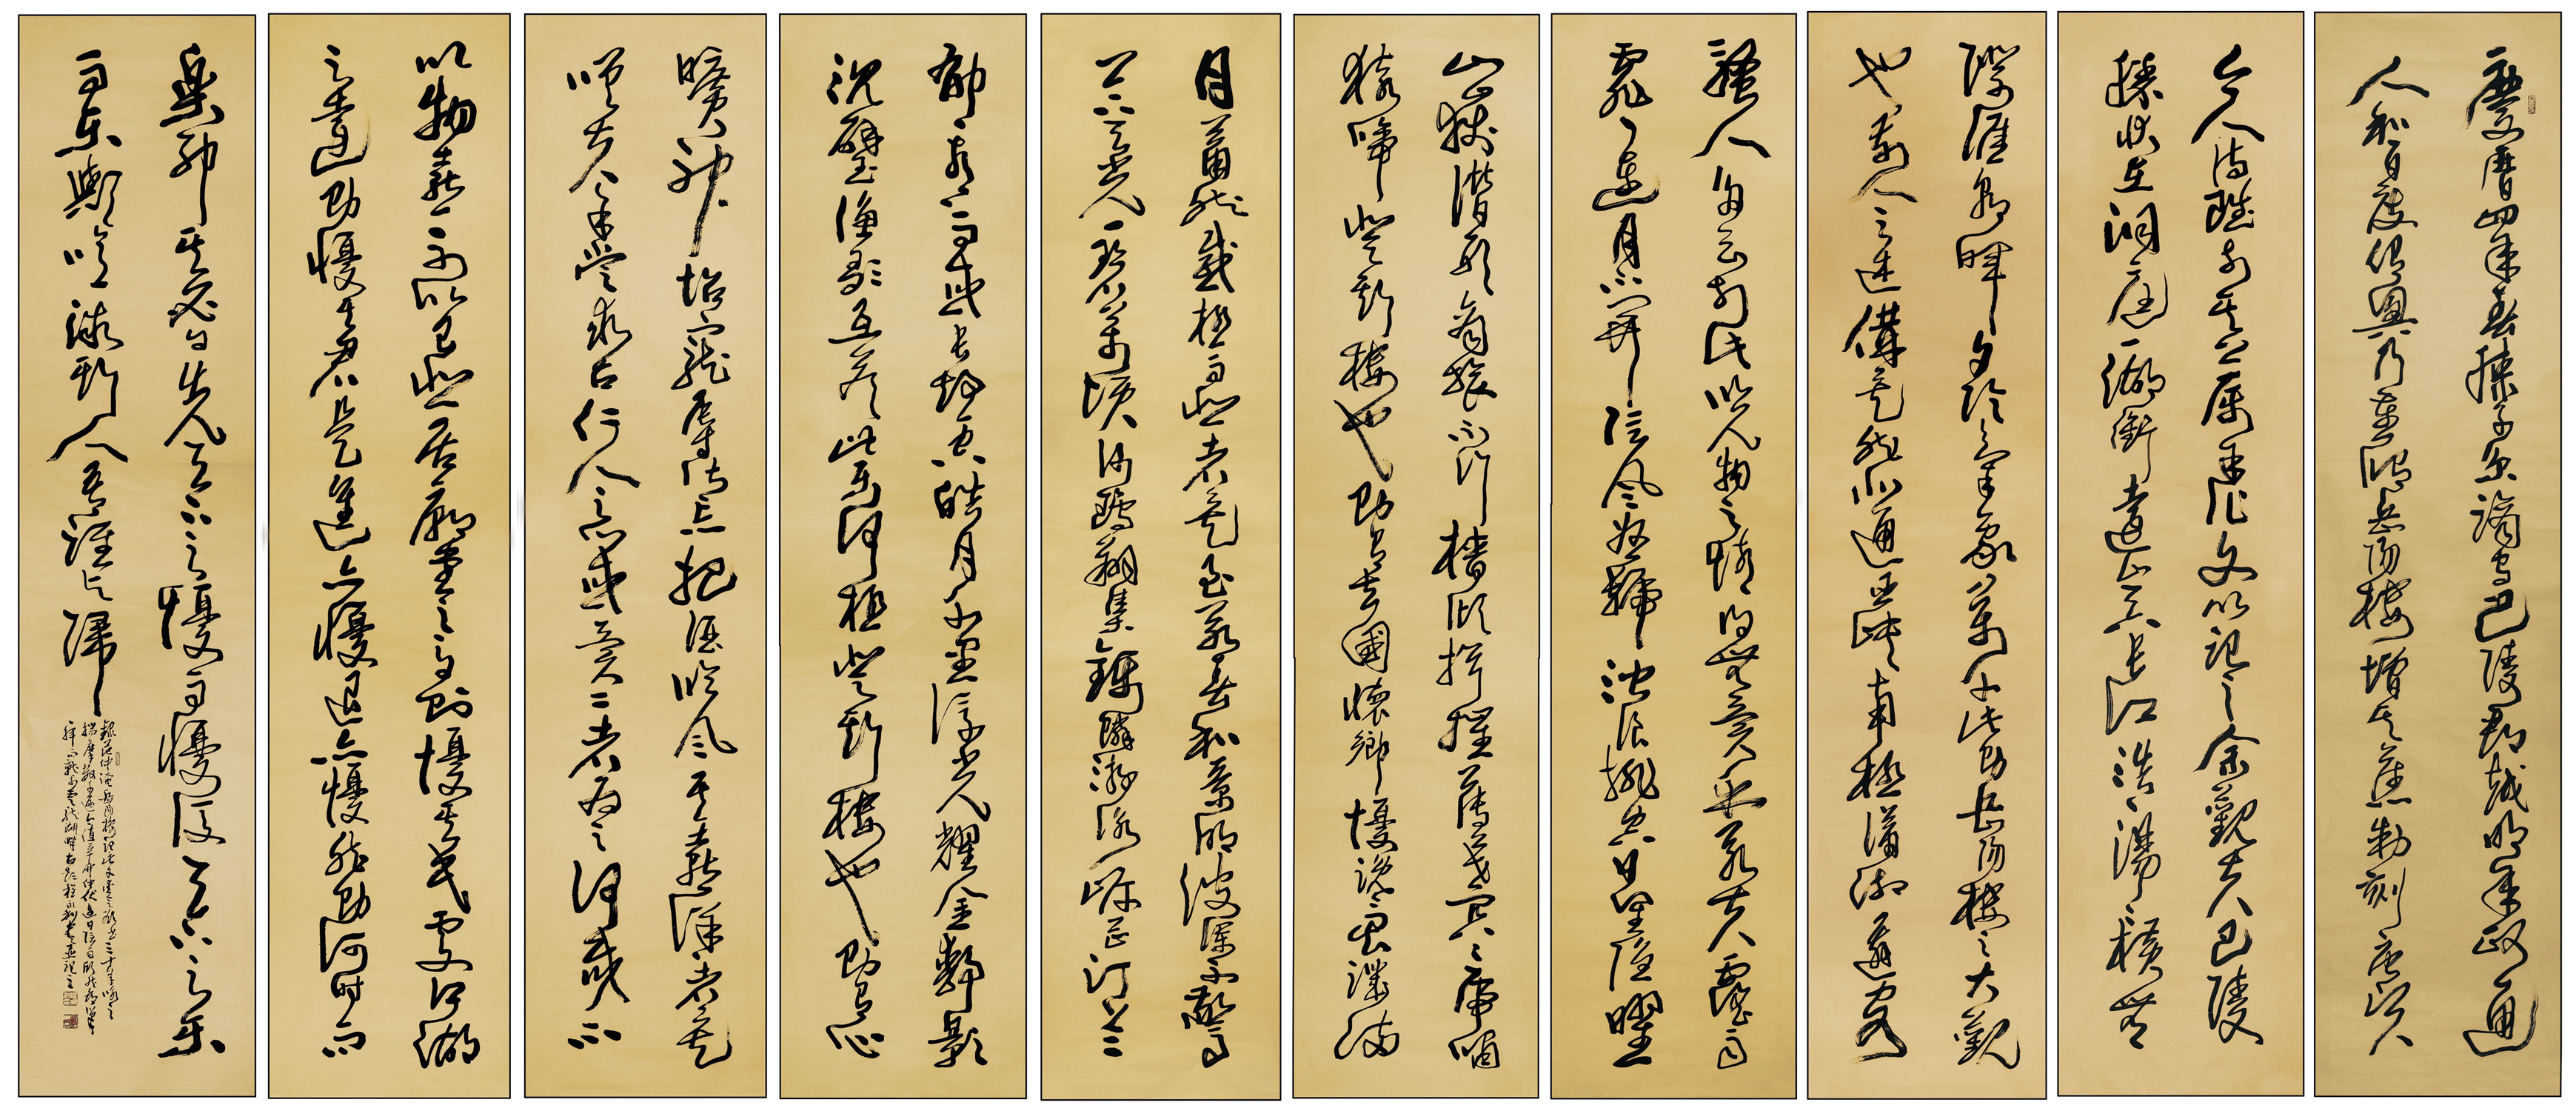 慶曆四年春滕子京謫守巴陵郡越明年政通
人和百廢俱興乃重修岳陽樓增其舊制刻唐賢
今人詩賦於其上屬予作文以記之余觀夫巴陵
勝狀在洞庭一湖銜遠山吞長江浩浩湯湯橫無
際涯朝暉夕陰氣象萬千此則岳陽樓之大觀
也前人之述備矣然則北通巫峽南極瀟湘遷客
騷人多會於此覽物之情得無異乎若夫霪雨
霏霏連月不開陰風怒號濁浪排空日星隱曜
山嶽潛形商旅不行檣傾楫摧薄暮冥冥虎嘯
猿啼登斯樓也則有去國懷鄉憂讒畏譏滿
目蕭然感極而悲者矣至若春和景明波瀾不驚
上下天光一碧萬頃沙鷗翔集錦鱗游泳岸芷汀兰
郁郁青青而或長煙一空皓月千里浮光耀金靜影
沉璧漁歌互答此樂何極登斯樓也則有心
曠神怡寵辱偕忘把酒臨風其喜洋洋者矣
嗟夫予嘗求古仁人之心或異二者之為何哉不
以物喜不以己悲居廟堂之高則憂其民處江湖
之遠則憂其君是進亦憂退亦憂然則何時而
樂耶其必曰先天下之憂而憂後天下之樂
而樂歟噫微斯人吾誰與歸
錄范仲淹岳陽樓記